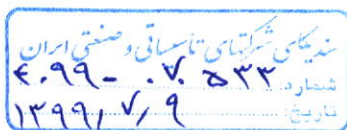 سندیکای شرکتهای تأسیساتی و صنعتی ایران
شماره: ۴۰۹۹-۰۷۰۵۳۳
تاریخ: ۱۳۹۹/۷/۹